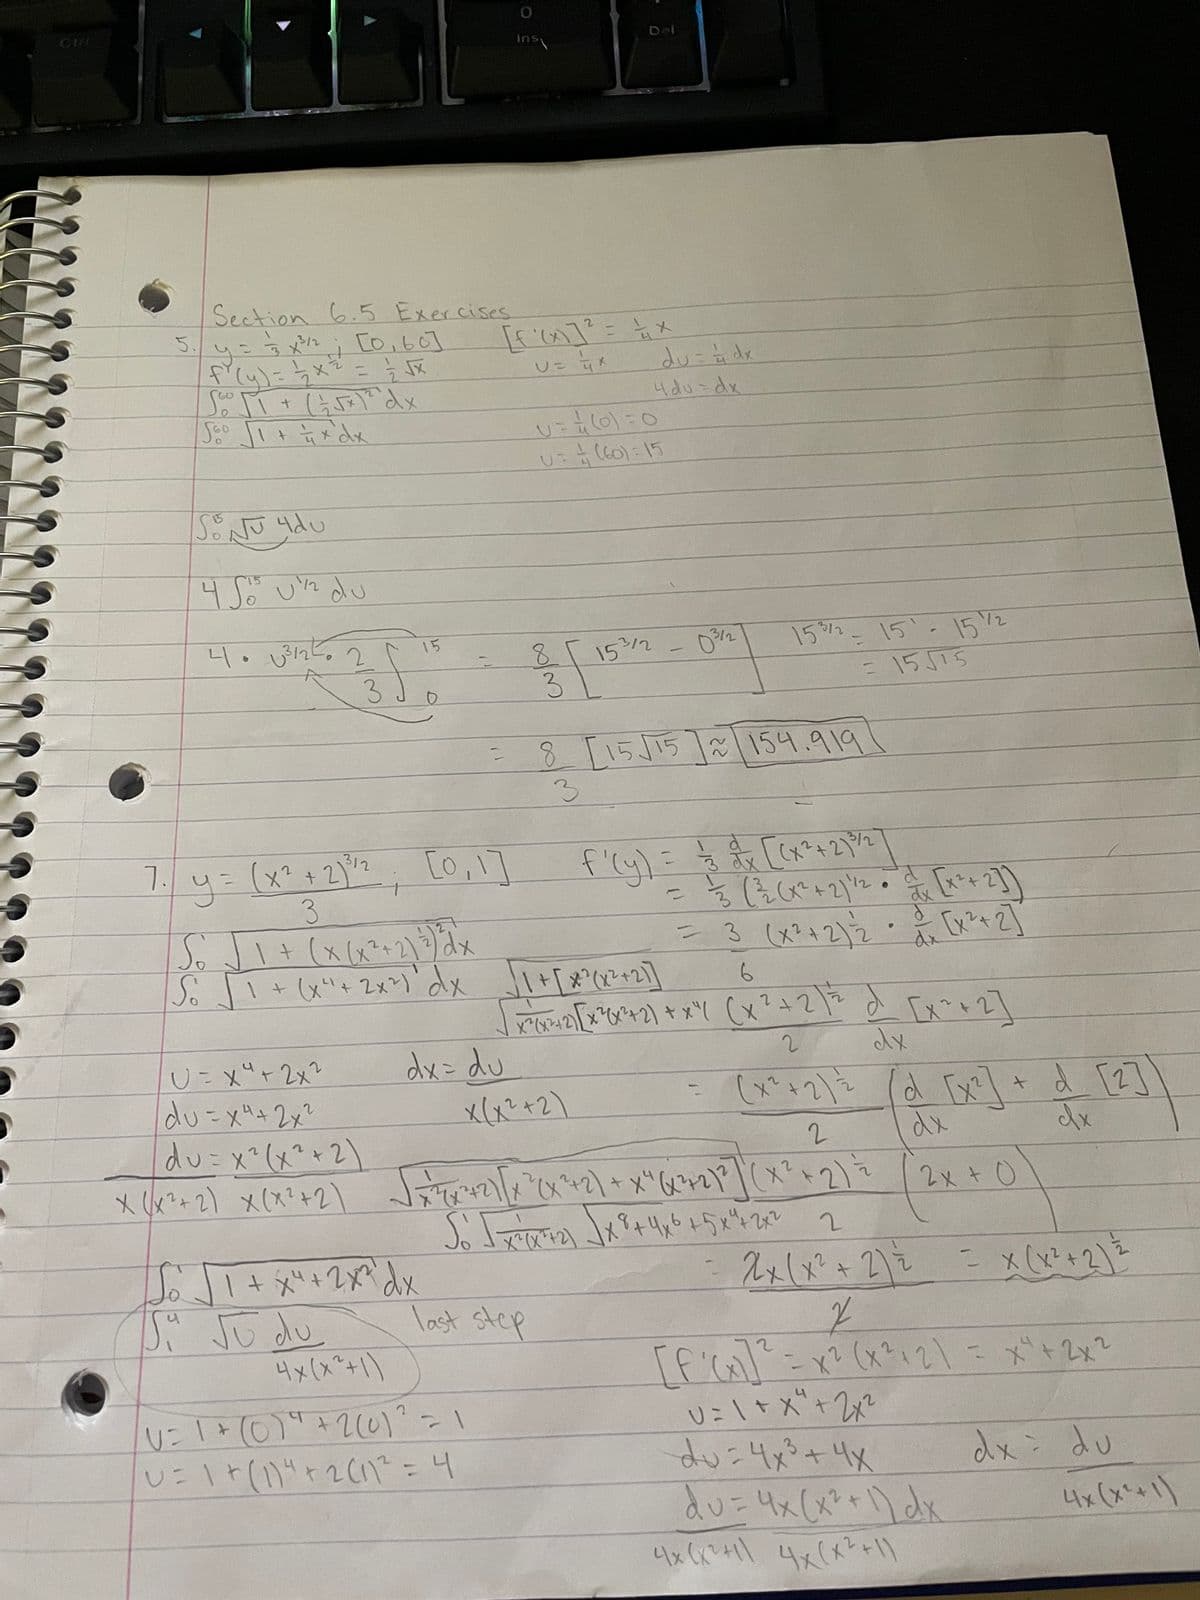 Ctrl
0
Ins
Del
Section 6.5 Exercises
5. y = 1/3 x^3/2 ; [0,60]
f'(y) = 1/2 x^1/2 = 1/2 √x
∫₀^60 √(1 + (1/2 √x)^2) dx
∫₀^60 √(1 + 1/4 x) dx
[f'(x)]² = 1/4 x
u = 1/4 x    du = 1/4 dx
4du = dx
u = 1/4 (0) = 0
u = 1/4 (60) = 15
∫₀^15 √u 4du
4 ∫₀^15 u^1/2 du
4 · u^3/2 · 2/3 ]₀^15 = 8/3 [15^3/2 - 0^3/2]
15^3/2 = 15^1 · 15^1/2
= 15√15
= 8/3 [15√15] ≈ 154.919
7. y = (x² + 2)^3/2 / 3 , [0,1]
∫₀^1 √(1 + (x(x²+2)^1/2)^2) dx
∫₀^1 √(1 + (x⁴ + 2x²)) dx
f'(y) = 1/3 d/dx [(x²+2)^3/2]
= 1/3 (3/2 (x²+2)^1/2 · d/dx [x²+2])
= 3 (x²+2)^1/2 / 6 · d/dx [x²+2]
√(1 + [x²(x²+2)])
√(1/x²(x²+2) [x²(x²+2) + x⁴(
(x²+2)^1/2 / 2 d/dx [x²+2]
u = x⁴ + 2x²
du = x⁴ + 2x²
du = x²(x²+2)
x(x²+2) x(x²+2)
dx = du / x(x²+2)
= (x²+2)^1/2 / 2 (d/dx [x²] + d/dx [2])
√(1/x²(x²+2) [x²(x²+2) + x⁴(x²+2)²])
(x²+2)^1/2 / 2 (2x + 0)
∫₀^1 √(1/x²(x²+2)) √(x⁸ + 4x⁶ + 5x⁴ + 2x²)
= 2x(x²+2)^1/2 / 2 = x(x²+2)^1/2
∫₀^1 √(1 + x⁴ + 2x²) dx
∫₁^4 √u du / 4x(x²+1)
last step
u = 1 + (0)⁴ + 2(0)² = 1
u = 1 + (1)⁴ + 2(1)² = 4
[f'(x)]² = x²(x²+2) = x⁴ + 2x²
u = 1 + x⁴ + 2x²
du = 4x³ + 4x
du = 4x(x²+1) dx
4x(x²+1) 4x(x²+1)
dx = du / 4x(x²+1)